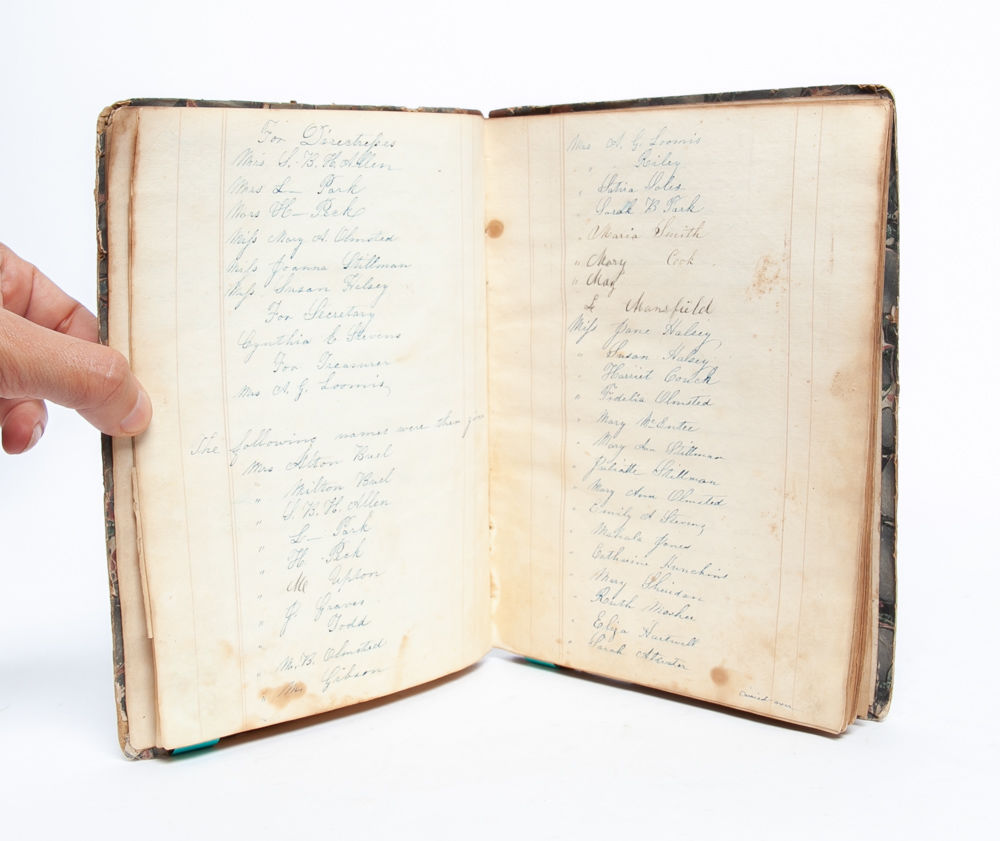 For Directresses
Mrs. S. B. H. Allen
Mrs L— Park
Mrs H— Peck
Miss Mary A. Olmsted
Miss Joanna Stillman
Miss Susan Halsey
For Secretary
Cynthia E Stevens
For Treasurer
Mrs. A. G. Loomis
The following names were then
Mrs Alton Buel
" Milton Buel
" S. B. H. Allen
" L— Park
" H— Peck
" M Upton
" G. Graves
" Todd
" M. B. Olmsted
" Mrs. Gibson
Mrs A. G. Loomis
" " Riley
" Sarah B. Park
" Maria Smith
" Mary Cook
" May
L Mansfield
Miss Jane Halsey
" Susan Halsey
" Harriet Couch
" Fidelia Olmsted
" Mary McEntee
" Mary Ann Stillman
" Juliatte Stillman
" Mary Ann Olmsted
" Emily A Stevens
" Mahala Jones
" Catharine Hunchins
" Mary Sheridan
" Reuth Mosher
" Eliza Hartwell
" Sarah Atwater
Carried over